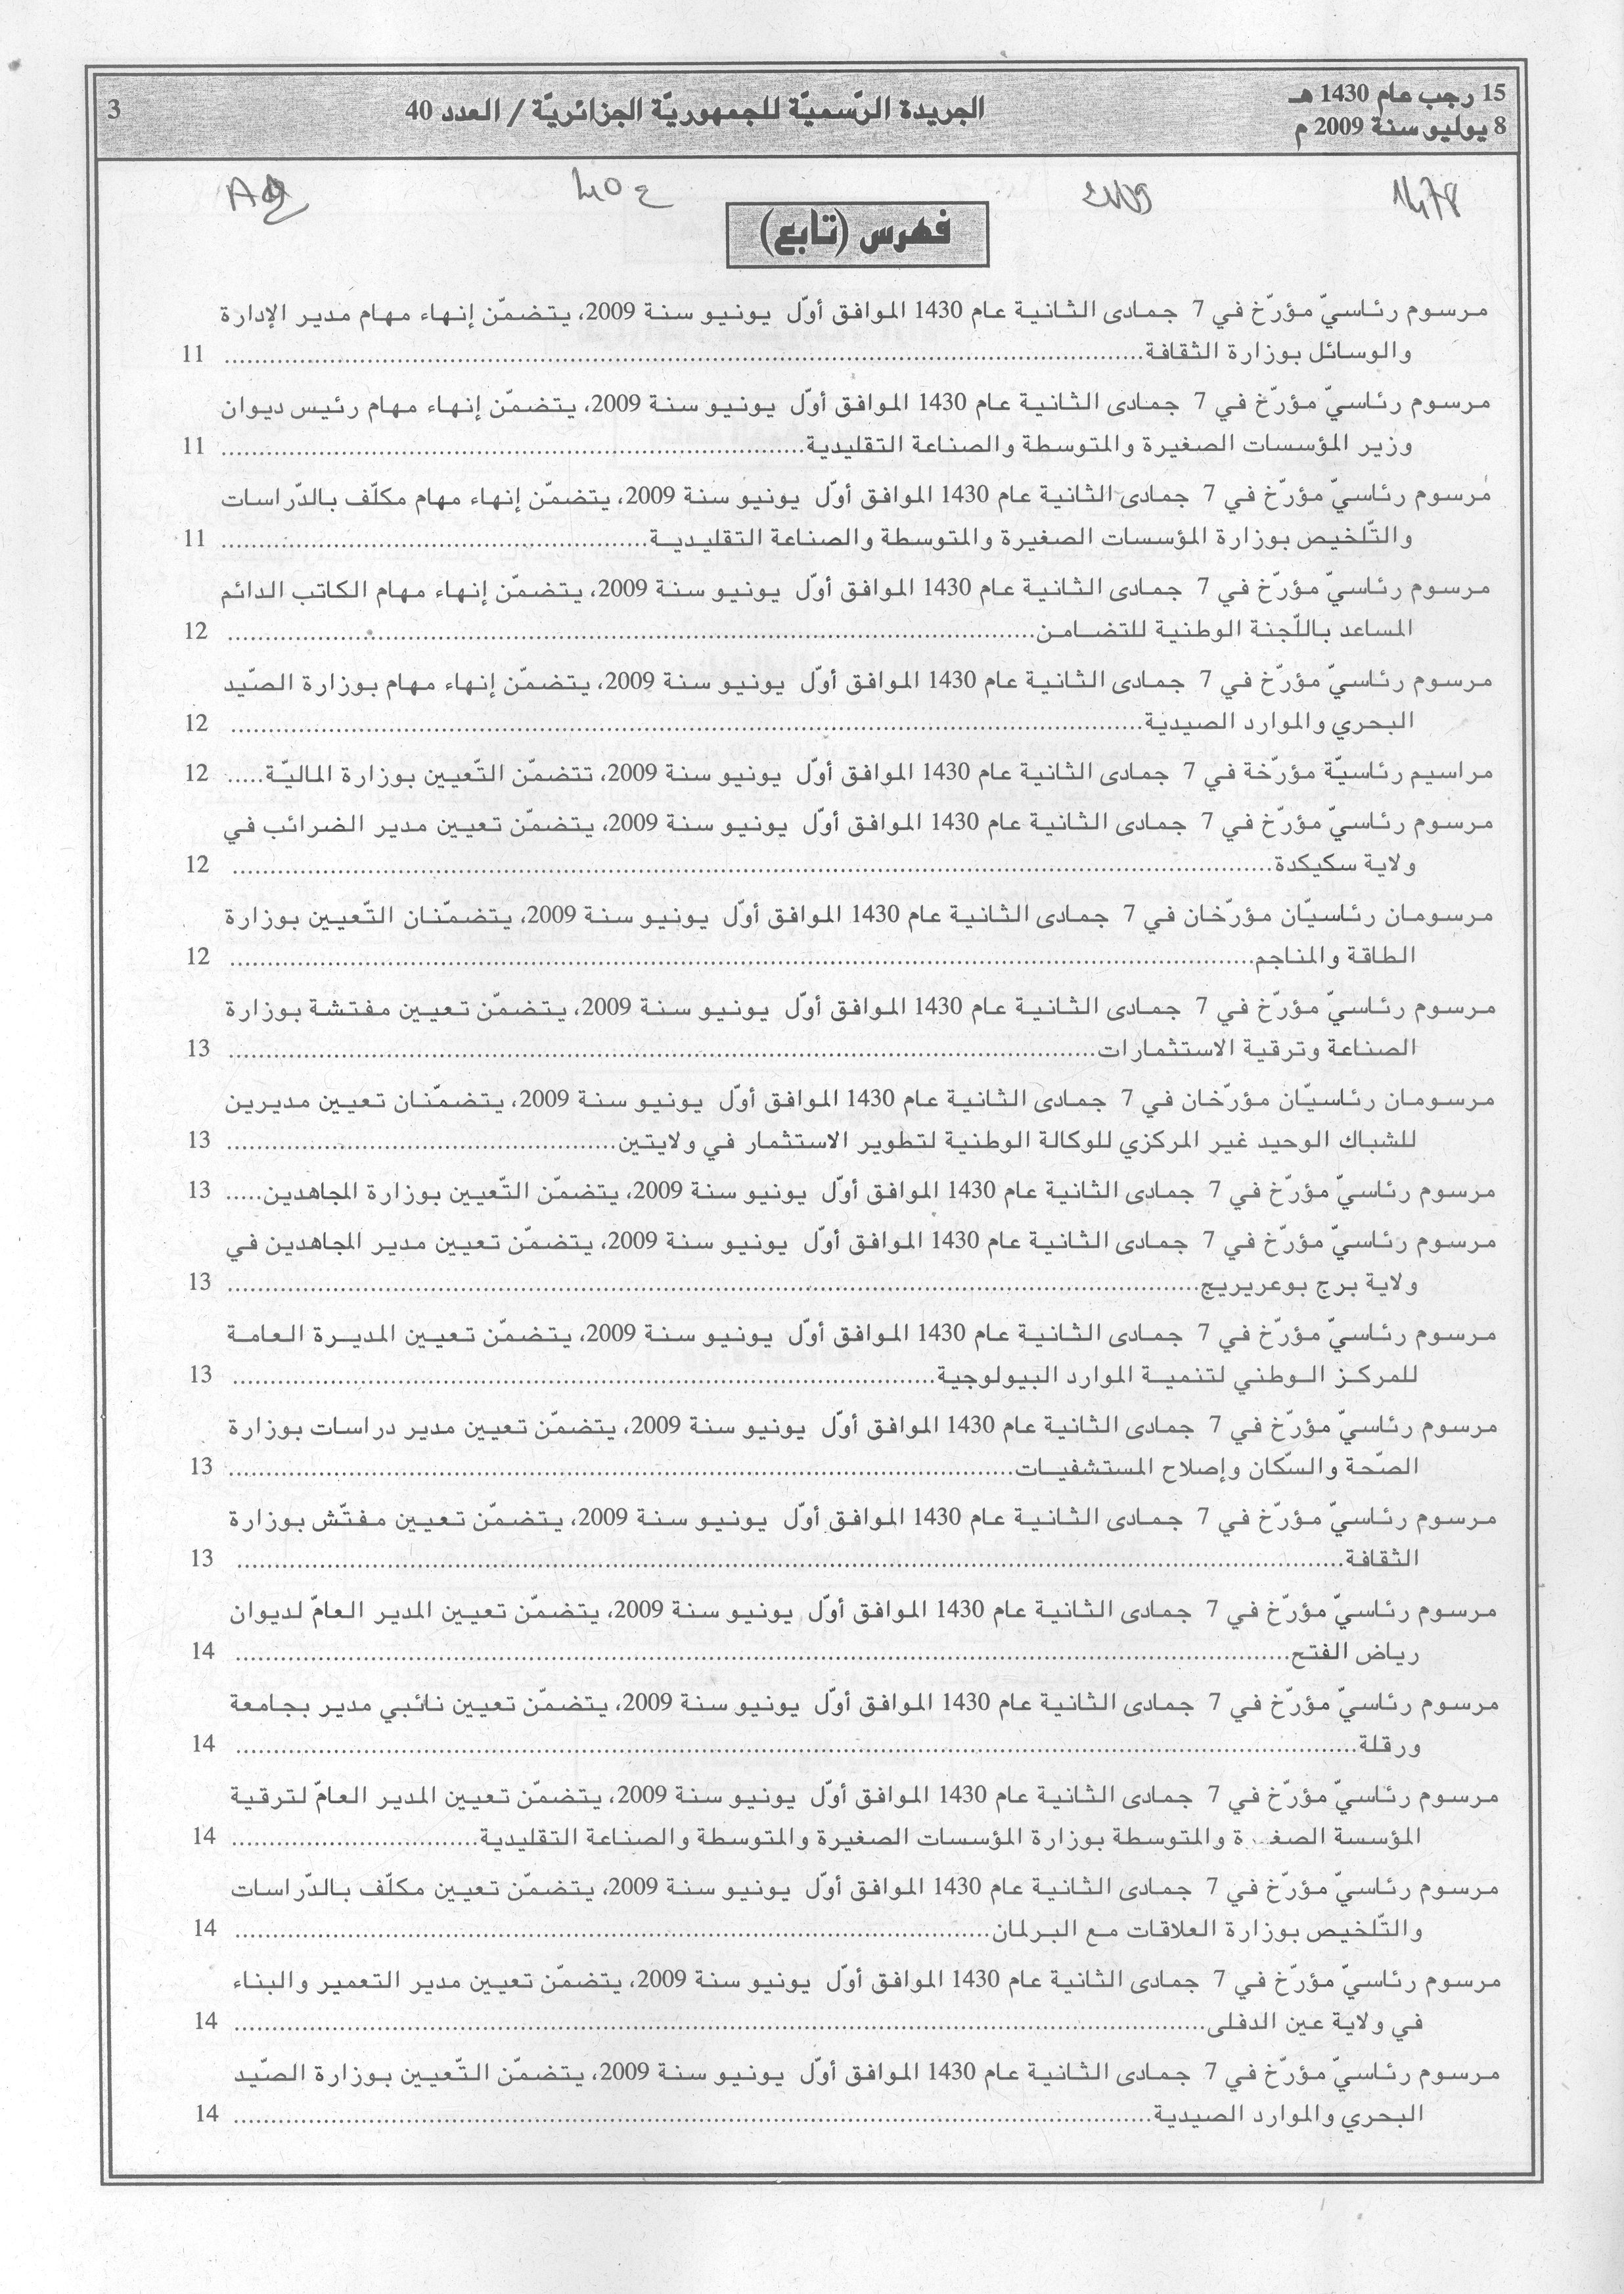 15 رجب عام 1430 هـ
8 يوليو سنة 2009 م
الجريدة الرّسميّة للجمهوريّة الجزائريّة / العدد 40
3
1478
40 ع
فهرس (تابع)
مرسوم رئاسيّ مؤرّخ في 7 جمادى الثانية عام 1430 الموافق أوّل يونيو سنة 2009، يتضمّن إنهاء مهام مدير الإدارة
والوسائل بوزارة الثقافة........................................ 11
مرسوم رئاسيّ مؤرّخ في 7 جمادى الثانية عام 1430 الموافق أوّل يونيو سنة 2009، يتضمّن إنهاء مهام رئيس ديوان
وزير المؤسسات الصغيرة والمتوسطة والصناعة التقليدية........................................ 11
مرسوم رئاسيّ مؤرّخ في 7 جمادى الثانية عام 1430 الموافق أوّل يونيو سنة 2009، يتضمّن إنهاء مهام مكلّف بالدّراسات
والتّلخيص بوزارة المؤسسات الصغيرة والمتوسطة والصناعة التقليدية........................................ 11
مرسوم رئاسيّ مؤرّخ في 7 جمادى الثانية عام 1430 الموافق أوّل يونيو سنة 2009، يتضمّن إنهاء مهام الكاتب الدائم
المساعد باللّجنة الوطنية للتضامن........................................ 12
مرسوم رئاسيّ مؤرّخ في 7 جمادى الثانية عام 1430 الموافق أوّل يونيو سنة 2009، يتضمّن إنهاء مهام بوزارة الصّيد
البحري والموارد الصيدية........................................ 12
مراسيم رئاسيّة مؤرّخة في 7 جمادى الثانية عام 1430 الموافق أوّل يونيو سنة 2009، تتضمّن التّعيين بوزارة الماليّة..... 12
مرسوم رئاسيّ مؤرّخ في 7 جمادى الثانية عام 1430 الموافق أوّل يونيو سنة 2009، يتضمّن تعيين مدير الضرائب في
ولاية سكيكدة........................................ 12
مرسومان رئاسيّان مؤرّخان في 7 جمادى الثانية عام 1430 الموافق أوّل يونيو سنة 2009، يتضمّنان التّعيين بوزارة
الطاقة والمناجم........................................ 12
مرسوم رئاسيّ مؤرّخ في 7 جمادى الثانية عام 1430 الموافق أوّل يونيو سنة 2009، يتضمّن تعيين مفتشة بوزارة
الصناعة وترقية الاستثمارات........................................ 13
مرسومان رئاسيّان مؤرّخان في 7 جمادى الثانية عام 1430 الموافق أوّل يونيو سنة 2009، يتضمّنان تعيين مديرين
للشباك الوحيد غير المركزي للوكالة الوطنية لتطوير الاستثمار في ولايتين........................................ 13
مرسوم رئاسيّ مؤرّخ في 7 جمادى الثانية عام 1430 الموافق أوّل يونيو سنة 2009، يتضمّن التّعيين بوزارة المجاهدين..... 13
مرسوم رئاسيّ مؤرّخ في 7 جمادى الثانية عام 1430 الموافق أوّل يونيو سنة 2009، يتضمّن تعيين مدير المجاهدين في
ولاية برج بوعريريج........................................ 13
مرسوم رئاسيّ مؤرّخ في 7 جمادى الثانية عام 1430 الموافق أوّل يونيو سنة 2009، يتضمّن تعيين المديرة العامة
للمركز الوطني لتنمية الموارد البيولوجية........................................ 13
مرسوم رئاسيّ مؤرّخ في 7 جمادى الثانية عام 1430 الموافق أوّل يونيو سنة 2009، يتضمّن تعيين مدير دراسات بوزارة
الصّحة والسّكان وإصلاح المستشفيات........................................ 13
مرسوم رئاسيّ مؤرّخ في 7 جمادى الثانية عام 1430 الموافق أوّل يونيو سنة 2009، يتضمّن تعيين مفتّش بوزارة
الثقافة........................................ 13
مرسوم رئاسيّ مؤرّخ في 7 جمادى الثانية عام 1430 الموافق أوّل يونيو سنة 2009، يتضمّن تعيين المدير العامّ لديوان
رياض الفتح........................................ 14
مرسوم رئاسيّ مؤرّخ في 7 جمادى الثانية عام 1430 الموافق أوّل يونيو سنة 2009، يتضمّن تعيين نائبي مدير بجامعة
ورقلة........................................ 14
مرسوم رئاسيّ مؤرّخ في 7 جمادى الثانية عام 1430 الموافق أوّل يونيو سنة 2009، يتضمّن تعيين المدير العامّ لترقية
المؤسسة الصغيرة والمتوسطة بوزارة المؤسسات الصغيرة والمتوسطة والصناعة التقليدية........................................ 14
مرسوم رئاسيّ مؤرّخ في 7 جمادى الثانية عام 1430 الموافق أوّل يونيو سنة 2009، يتضمّن تعيين مكلّف بالدّراسات
والتّلخيص بوزارة العلاقات مع البرلمان........................................ 14
مرسوم رئاسيّ مؤرّخ في 7 جمادى الثانية عام 1430 الموافق أوّل يونيو سنة 2009، يتضمّن تعيين مدير التعمير والبناء
في ولاية عين الدفلى........................................ 14
مرسوم رئاسيّ مؤرّخ في 7 جمادى الثانية عام 1430 الموافق أوّل يونيو سنة 2009، يتضمّن التّعيين بوزارة الصّيد
البحري والموارد الصيدية........................................ 14